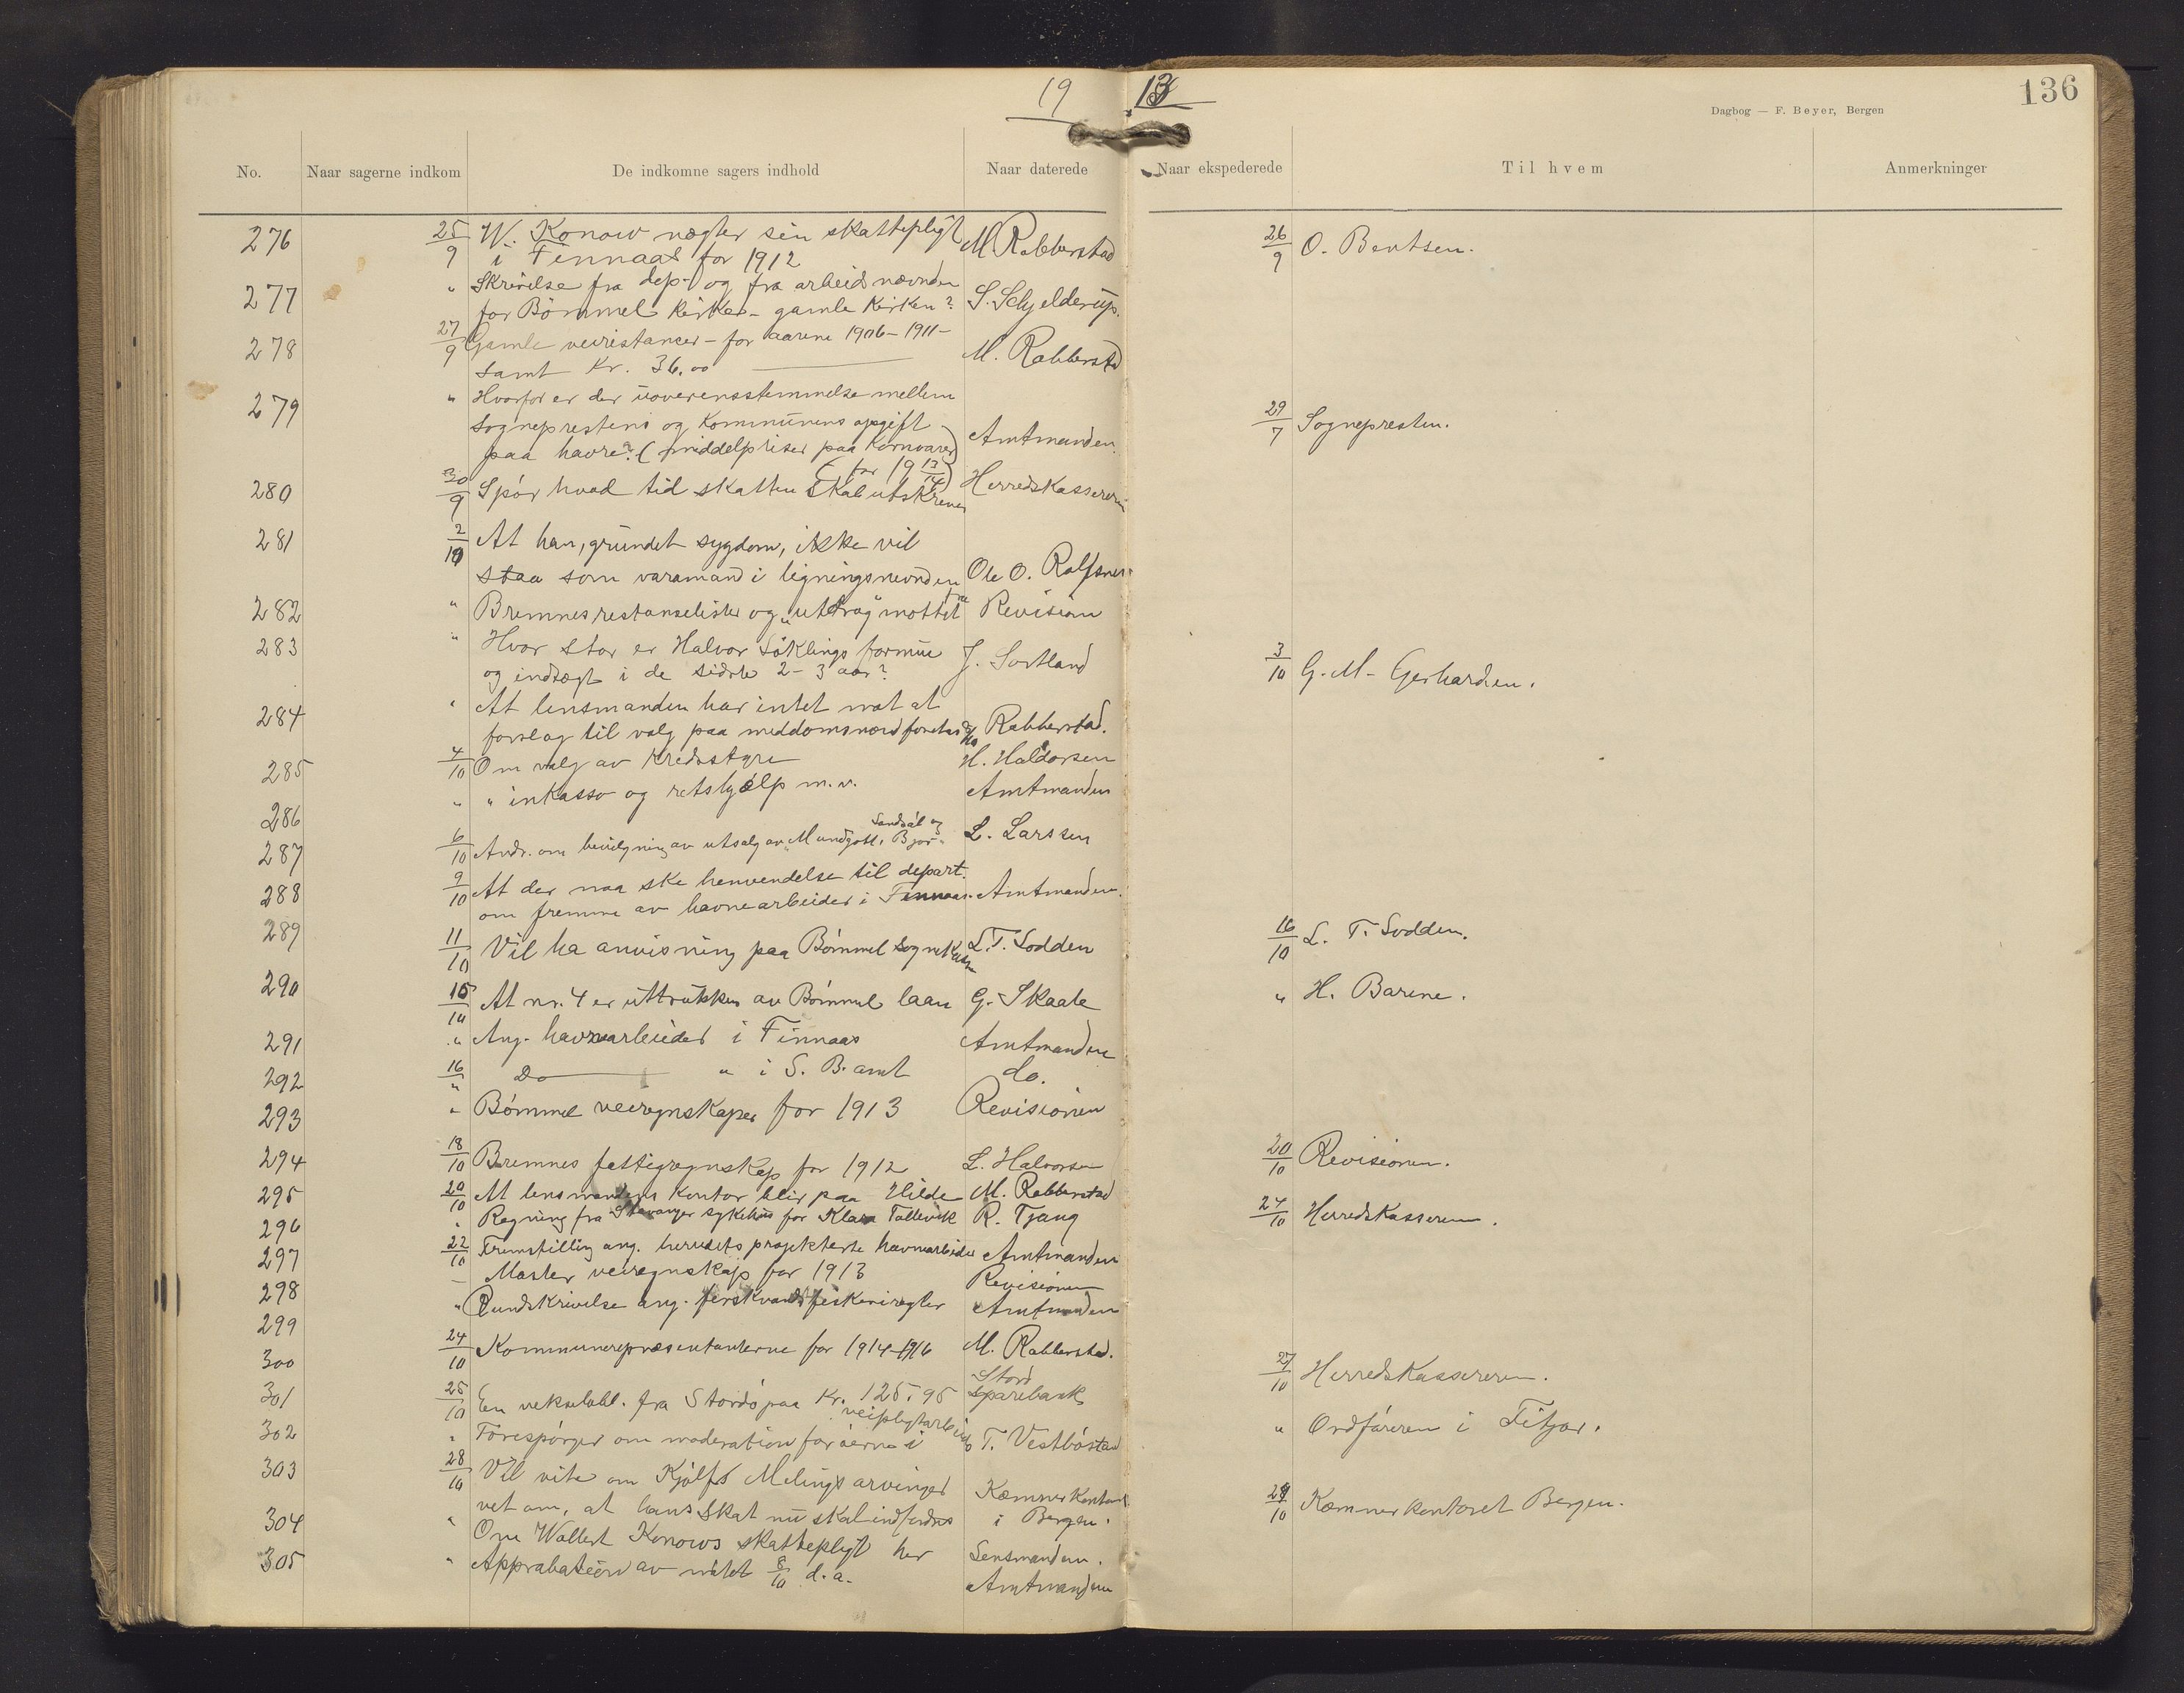 19 13
136
Dagbog — F. Beyer, Bergen
No. Naar sagerne indkom De indkomne sagers indhold Naar daterede Naar ekspederede Til hvem Anmerkninger
276 25/9 W. Konow nægter sin skattepligt M. Robberstad 26/9 O. Bentsen.
i Finnaas for 1912
277 " Skrivelse fra dep. og fra arbeidsnævnden
for Bömmel kirke - gamle kirken? S. Schjelderup.
278 27/9 Gamle veirestancer - for aarene 1906-1911-
samt Kr. 36.00 M. Robberstad
279 " Hvorfor er der uoverensstemmelse mellem
sogneprestens og kommunens opgift Amtmanden. 29/7 Sognepresten.
paa havre? (middelpriser paa kornvarer)
(for 1913/14)
280 30/9 Spör hvad tid skatten skal utskrives Herredskassereren
281 2/10 At han, grundet sygdom, ikke vil
staa som varamand i ligningsnevnden Ole O. Rolfsnes
282 " Bremnes restanselister og "uttrag" mottat fra Revision
283 " Hvor stor er Halvor Söklings formue J. Sortland 3/10 G. M. Gerhardsen.
og indtægt i de sidste 2-3 aar?
284 " At lensmanden har intet mot at
forslag til valg paa meddomsmænd foretas Robberstad.
285 4/10 Om valg av kredsstyre H. Haldorsen
286 " " inkasso og retshjælp m.v. Amtmanden
Sandsöl og
287 6/10 Andr. om bevilgning av utsalg av "Mundgott, Bjor" L. Larssen
288 9/10 At der maa ske henvendelse til depart.
om fremme av havnearbeider i Finnaas. Amtmanden.
289 11/10 Vil ha anvisning paa Bömmel sognekasse L. T. Sodden 16/10 L. T. Sodden.
290 15/10 At nr. 4 er uttrukken av Bömmel laan G. Skaale " H. Barene.
291 " Ang. havnearbeider i Finnaas Amtmanden
292 16/" Do " i S. B. amt do.
293 " Bömmel veiregnskaper for 1913 Revisionen
294 18/10 Bremnes fattigregnskap for 1912 L. Halvorsen 20/10 Revisionen.
295 20/10 At lensmandens kontor blir paa Hilde M. Robberstad
296 " Regning fra Stavanger sykehus for Klara Tollevik R. Tjang 24/10 Herredskassereren.
297 22/10 Fremstilling ang. herredets projekterte havnearbeider Amtmanden
298 — Moster veiregnskap for 1913 Revisionen
299 " Rundskrivelse ang. ferskvandsfiskeriregler Amtmanden
300 24/10 Kommunerepræsentanterne for 1914-1916 M. Robberstad.
Stord
301 25/10 En vekselobl. fra Stordö paa Kr. 125.95 Sparebank 27/10 Herredskassereren.
veipligtarbeide
302 " Forespörger om moderation for öerne i T. Vestböstad " Ordföreren i Fitjar.
303 28/10 Vil vite om Kjölfs Melings arvinger Kæmnerkontoret
vet om, at hans skat nu skal indfordres i Bergen. 29/10 Kæmnerkontoret Bergen.
304 " Om Wollert Konows skattepligt her Lensmanden.
305 " Approbation av mötet 8/10 d.a. Amtmanden